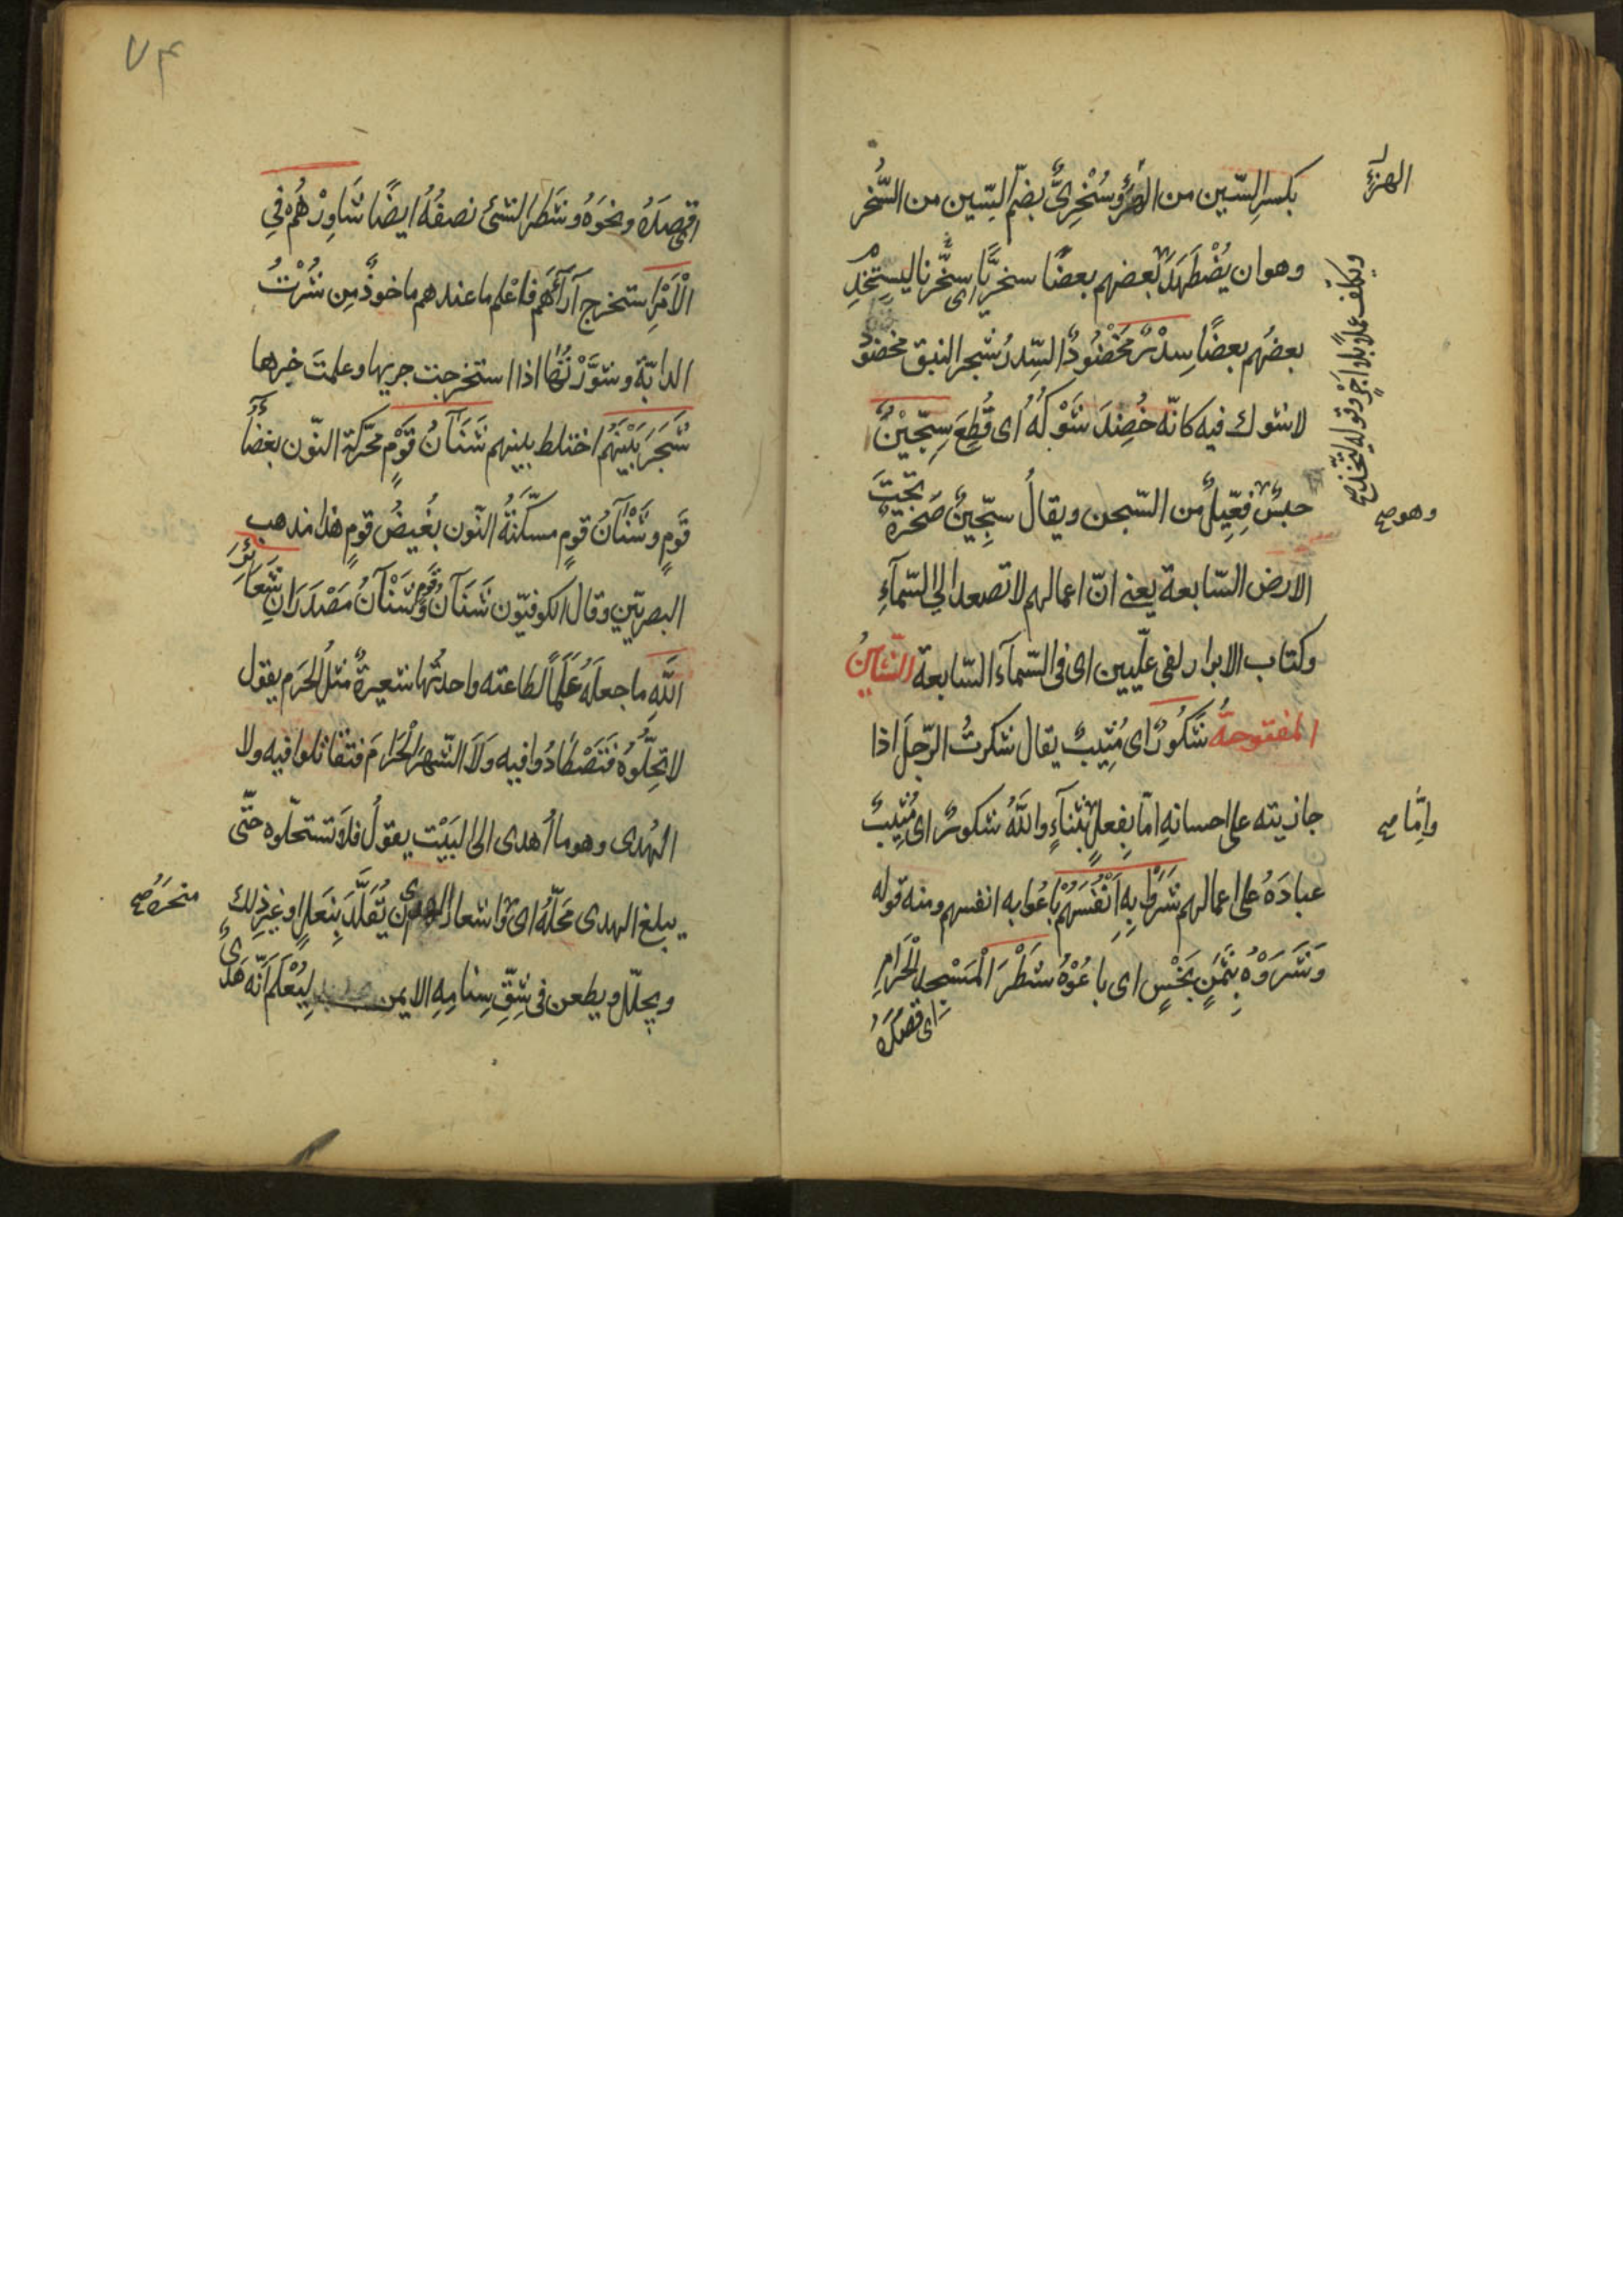 بكسرِ السّين من الهزؤ وسُخْرِىٌّ بضمّ السّين من السُّخْرِ
الهزْءِ
وهو ان يُضْطَهَدَ بعضهم بعضًا سخرّيًا اى سخّرنا ليستخدم
ويكلّف عملًا بلا اَجْرٍ وقوله ليتّخذ صح
بعضُهم بعضًا سِدْرٍ مَخْضُودٍ السِّدرُ شجر النبق مخضود
لا شوك فيه كانّه خُضِدَ شَوْكُهُ اى قُطِعَ سِجِّيْنٌ
حبسٌ فِعِّيلٌ من السّجن ويقالُ سِجِّينٌ صَخْرَةٌ تحْتَ
وهو صح
الارض السّابعة يعنى انّ اعمالهم لا تصعد الى السّمآءِ
وكتاب الابرار لفى علّيين اى فى السّمآء السّابعة الشّينُ
المفتوحةُ شَكُورٌ اى مُثِيبٌ يقال شكرتُ الرّجلَ اذا
جازيته على احسانهِ امّا بِفعلٍ بثنآءٍ واللّهُ شكورٌ اى مُثِيبٌ
وامَّا صح
عبادَهُ على اعمالهم شَرَوْا بِهِ اَنْفُسَهُمْ باعُوا به انفسهم ومنه قوله
وَشَرَوْهُ بِثَمَنٍ بَخْسٍ اى باعُوْهُ شَطْرَ الْمَسْجد الْحَرَامِ
اى قصدَهُ
اقصدَهُ ونحوَهُ وشَطْرُ الشئ نصفُهُ ايضًا شَاوِرْهُمْ فِى
الْاَمْرِ استخرج آرَآءَهُم فاعْلم ما عندهم ماخوذٌ مِن شُرْتُ
الدابّة وشوَّرْتُهَا اذا استخرجت جريها وعلمتَ خبرها
شَجَرَ بَيْنَهُمْ اختلط بينهم شَنَآنُ قَوْمٍ محرّكة النّون بغضآءُ
قَومٍ وشَنْآنُ قومٍ مسكّنةُ النّون بغيضُ قومٍ هذا مذهب
البصريّين وقال الكوفيّون شَنَآنُ قَومٍ وشَنْآنُ مَصْدَرَانِ شَعَائرَ
اللّهِ ما جعلَهُ عَلَمًا لطاعته واحدتُها شعيرةٌ مثلُ الحَرَم يقول
لا تحلّوُهُ فَتَصْطَادُوا فيه وَلَا الشّهرَ الْحَرَامَ فتقاتلوا فيه ولا
الهَدى وهو ما اُهدى الى البَيْتِ يقولُ فلا تستحلّوه حتّى
يبلغ الهدى مَحَلّهُ اى واشعار الهدى ان يُقَلَّدَ بِنَعلٍ او غيرِ ذلك
منحرَهُ صح
ويجلّل ويطعن فى شِقِّ سِنامِهِ الايمن لِيُعْلَمَ اَنّه هَدْىٌ
٧٤